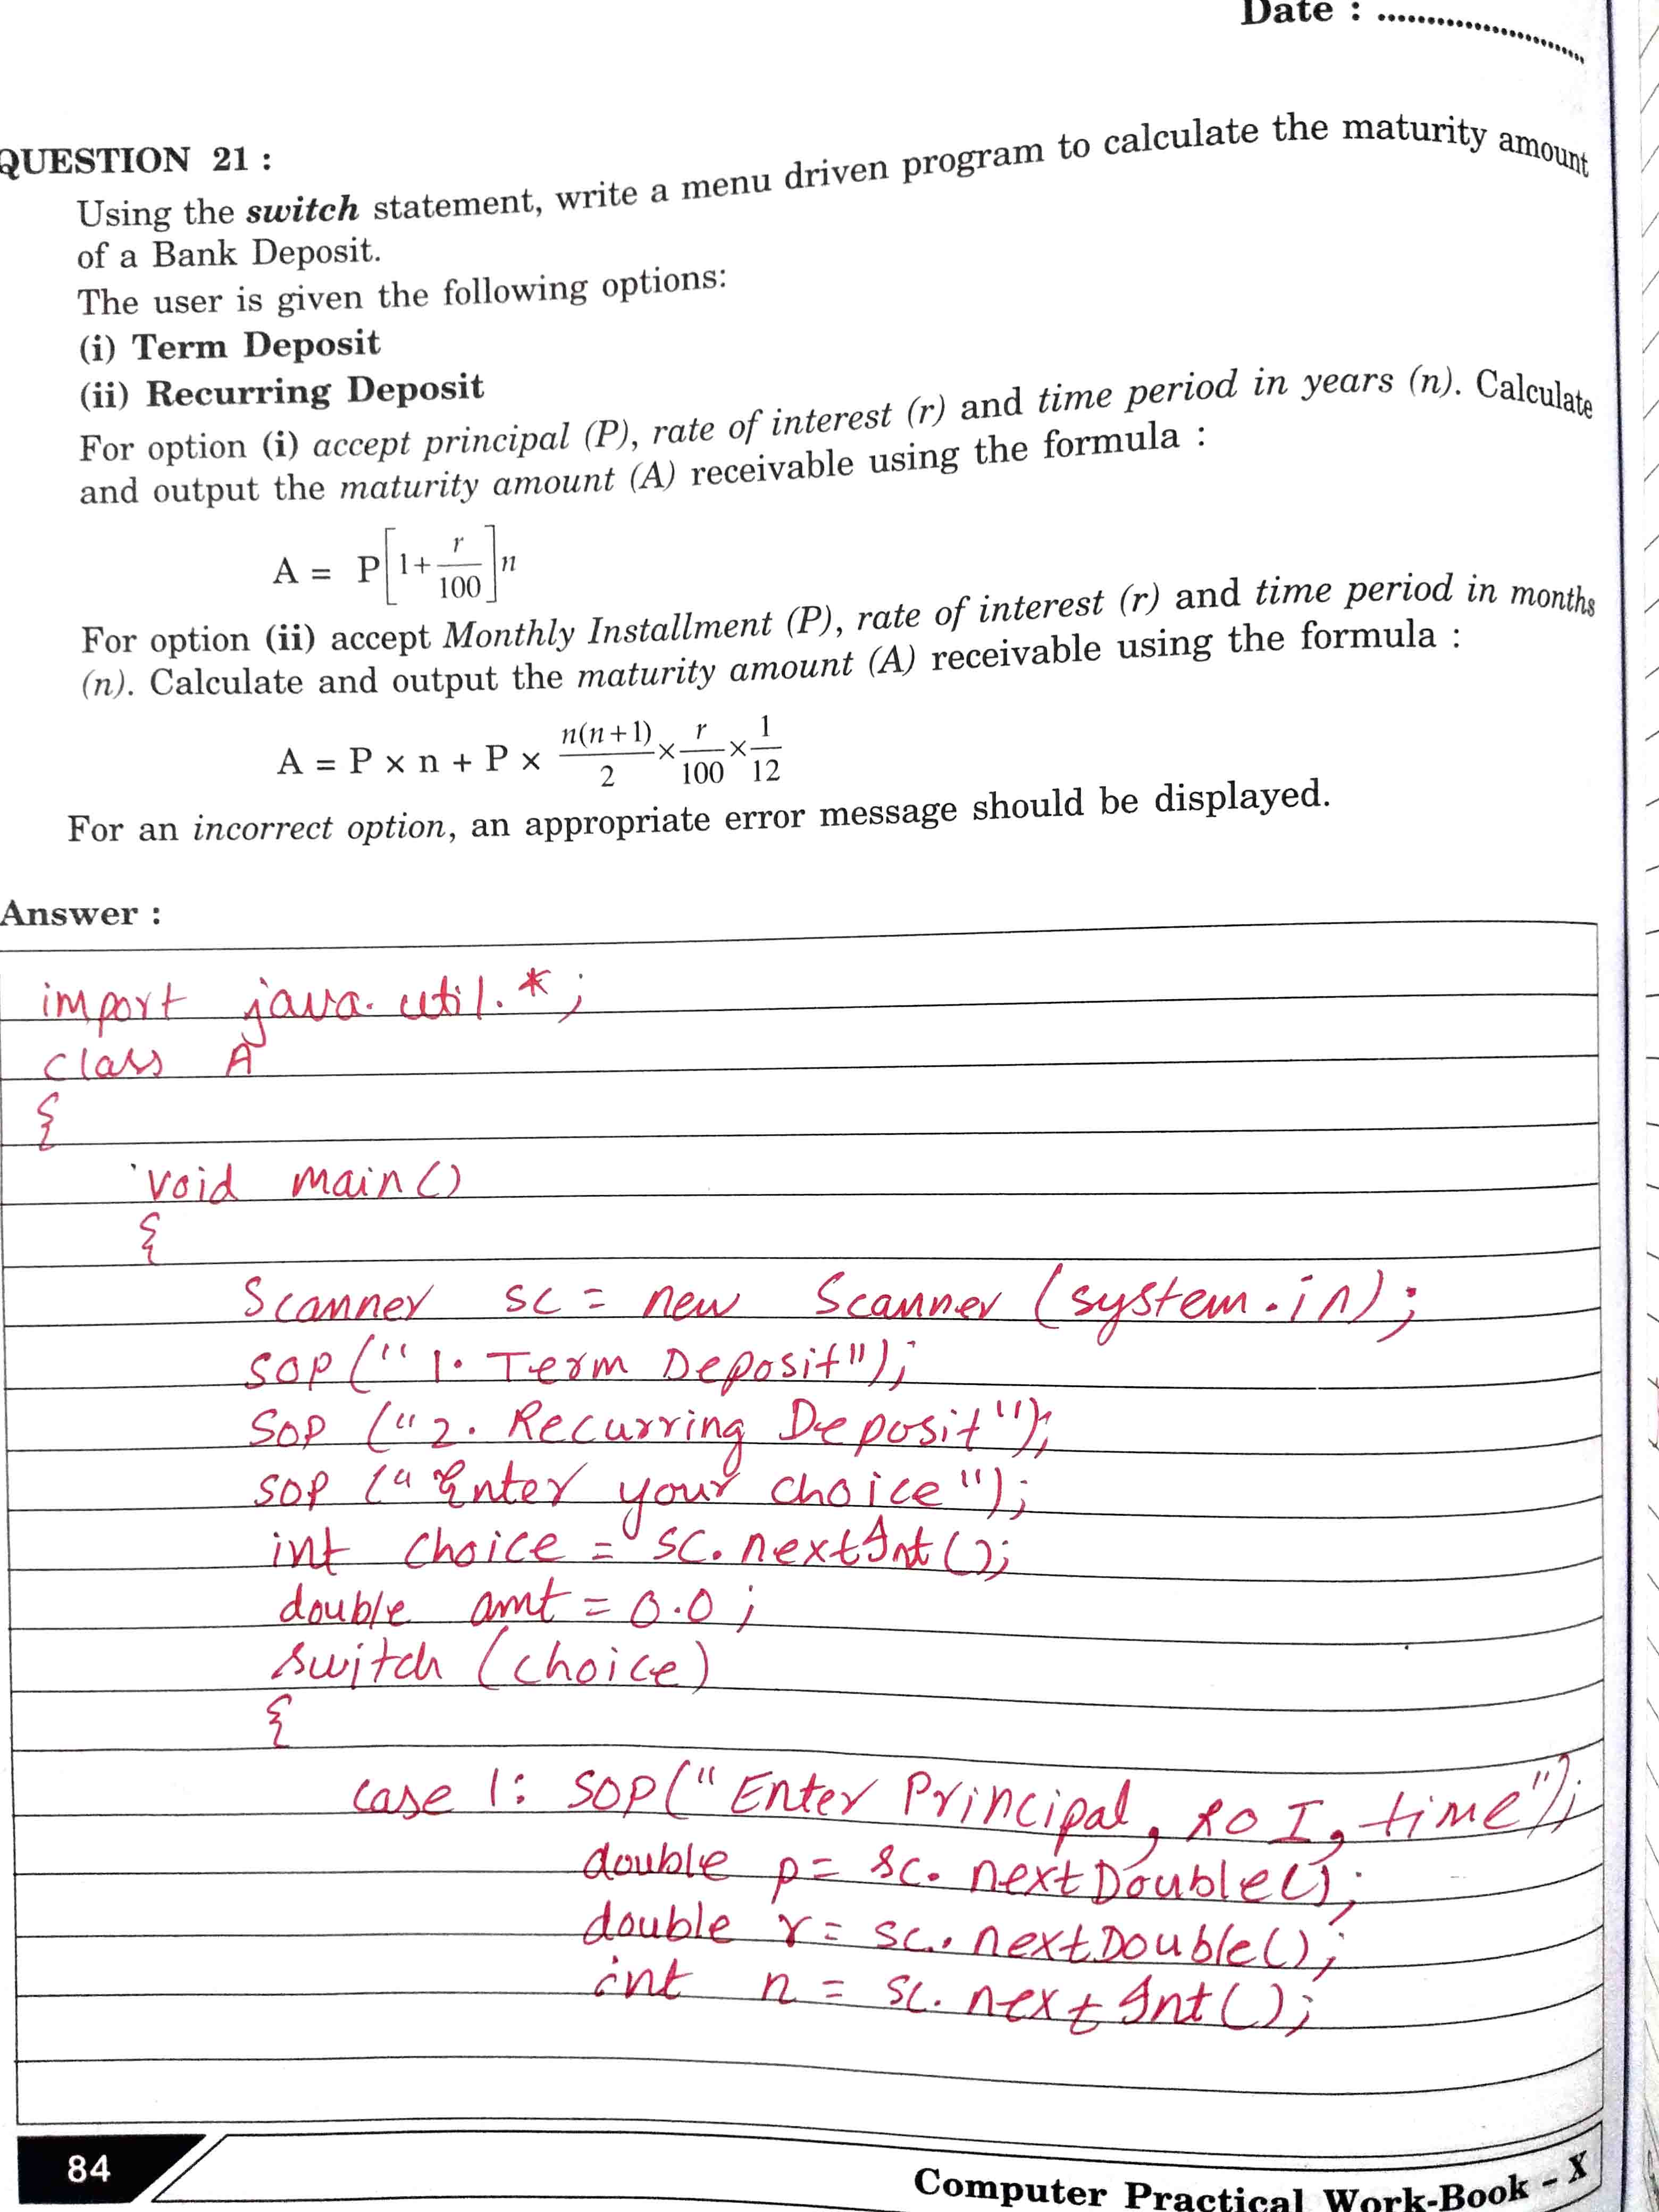 Date : ..............................
QUESTION 21 :
Using the switch statement, write a menu driven program to calculate the maturity amount
of a Bank Deposit.
The user is given the following options:
(i) Term Deposit
(ii) Recurring Deposit
For option (i) accept principal (P), rate of interest (r) and time period in years (n). Calculate
and output the maturity amount (A) receivable using the formula :
A = P[1+r/100]n
For option (ii) accept Monthly Installment (P), rate of interest (r) and time period in months
(n). Calculate and output the maturity amount (A) receivable using the formula :
A = P × n + P × n(n+1)/2 × r/100 × 1/12
For an incorrect option, an appropriate error message should be displayed.
Answer :
import java.util.*;
class A
{
void main()
{
Scanner sc = new Scanner (system.in);
sop ("1. Term Deposit");
sop ("2. Recurring Deposit");
sop ("Enter your choice");
int choice = sc.nextInt();
double amt = 0.0;
switch (choice)
{
case 1: sop("Enter Principal, ROI, time");
double p = sc.nextDouble();
double r = sc.nextDouble();
int n = sc.nextInt();
84
Computer Practical Work-Book - X